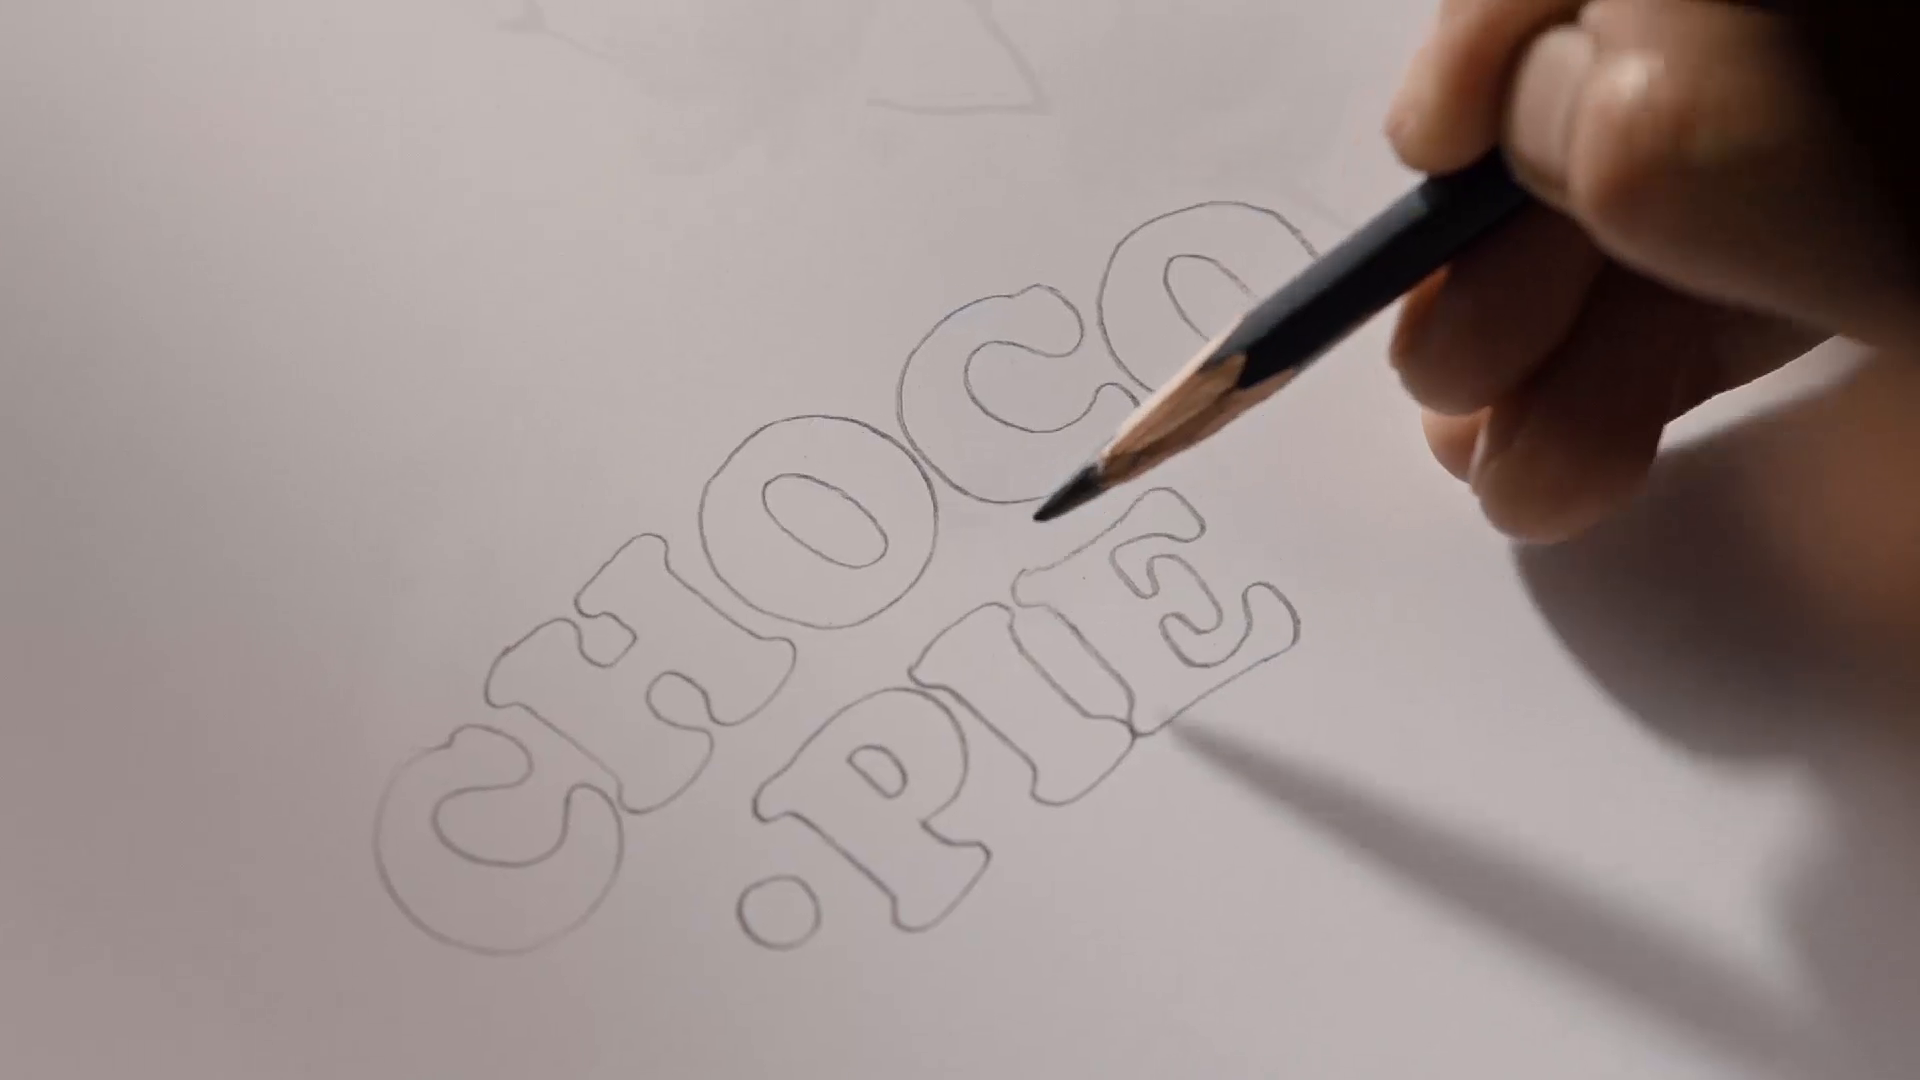 CHOCO
•PIE